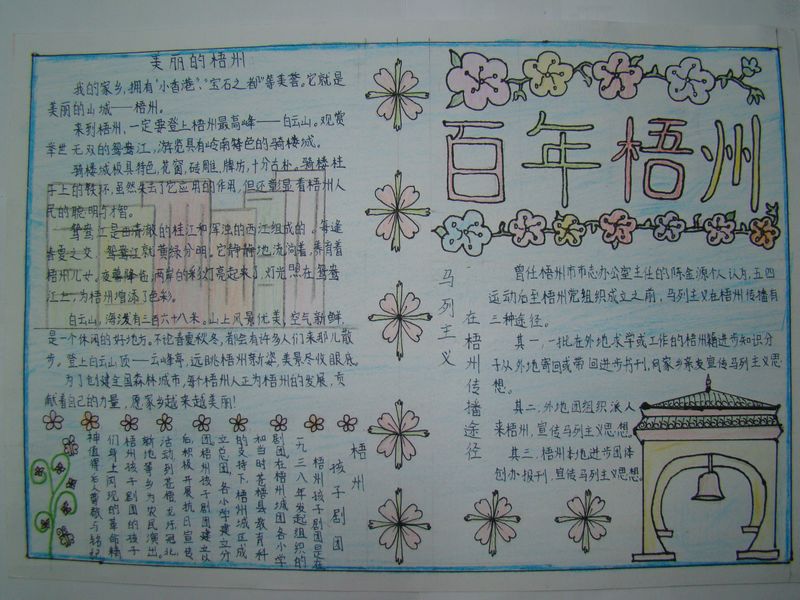 美丽的梧州
我的家乡,拥有“小香港”、“宝石之都”等美誉。它就是
美丽的山城——梧州。
来到梧州,一定要登上梧州最高峰——白云山。观赏
举世无双的鸳鸯江,游览具有岭南特色的骑楼城。
骑楼城极具特色,花窗,砖雕,牌坊,十分古朴。骑楼柱
子上的铁环,虽然失去了它应用的作用,但还重显着梧州人
民的聪明与才智。
鸳鸯江是由清澈的桂江和浑浊的西江组成的。每逢
春夏之交,鸳鸯江就黄绿分明。它静静地流淌着,养育着
梧州儿女。夜幕降临,两岸的彩灯亮起来了,灯光照在鸳鸯
江上,为梧州增添了色彩。
白云山,海拔有三百六十八米。山上风景优美,空气新鲜,
是一个休闲的好地方。不论春夏秋冬,都会有许多人们来那儿散
步。登上白云山顶——云峰亭,远眺梧州新姿,美景尽收眼底。
为了创建全国森林城市,每个梧州人正为梧州的发展,贡
献着自己的力量,愿家乡越来越美丽!
百年梧州
马列主义
在梧州传播途径
曾任梧州市市志办公室主任的陈金源个人认为,五四
运动后至梧州党组织成立之前,马列主义在梧州传播有
三种途径。
其一,一批在外地求学或工作的梧州籍进步知识分
子从外地寄回或带回进步书刊,向家乡亲友宣传马列主义思
想。
其二,外地团组织派人
来梧州,宣传马列主义思想。
其三,梧州本地进步团体
创办报刊,宣传马列主义思想。
梧州
孩子剧团
梧州孩子剧团是在
一九三八年发起组织的
剧团。在梧州城团各小学
和当时苍梧县教育科
的支持下,梧州城正成
立总团,各小学建立分
团。梧州孩子剧团建立以
后,积极开展抗日宣传
活动,到苍梧龙圩、冠北、
新地等乡为农民演出。
梧州孩子剧团的孩子
们身上闪现的革命精
神值得后人尊敬与铭记